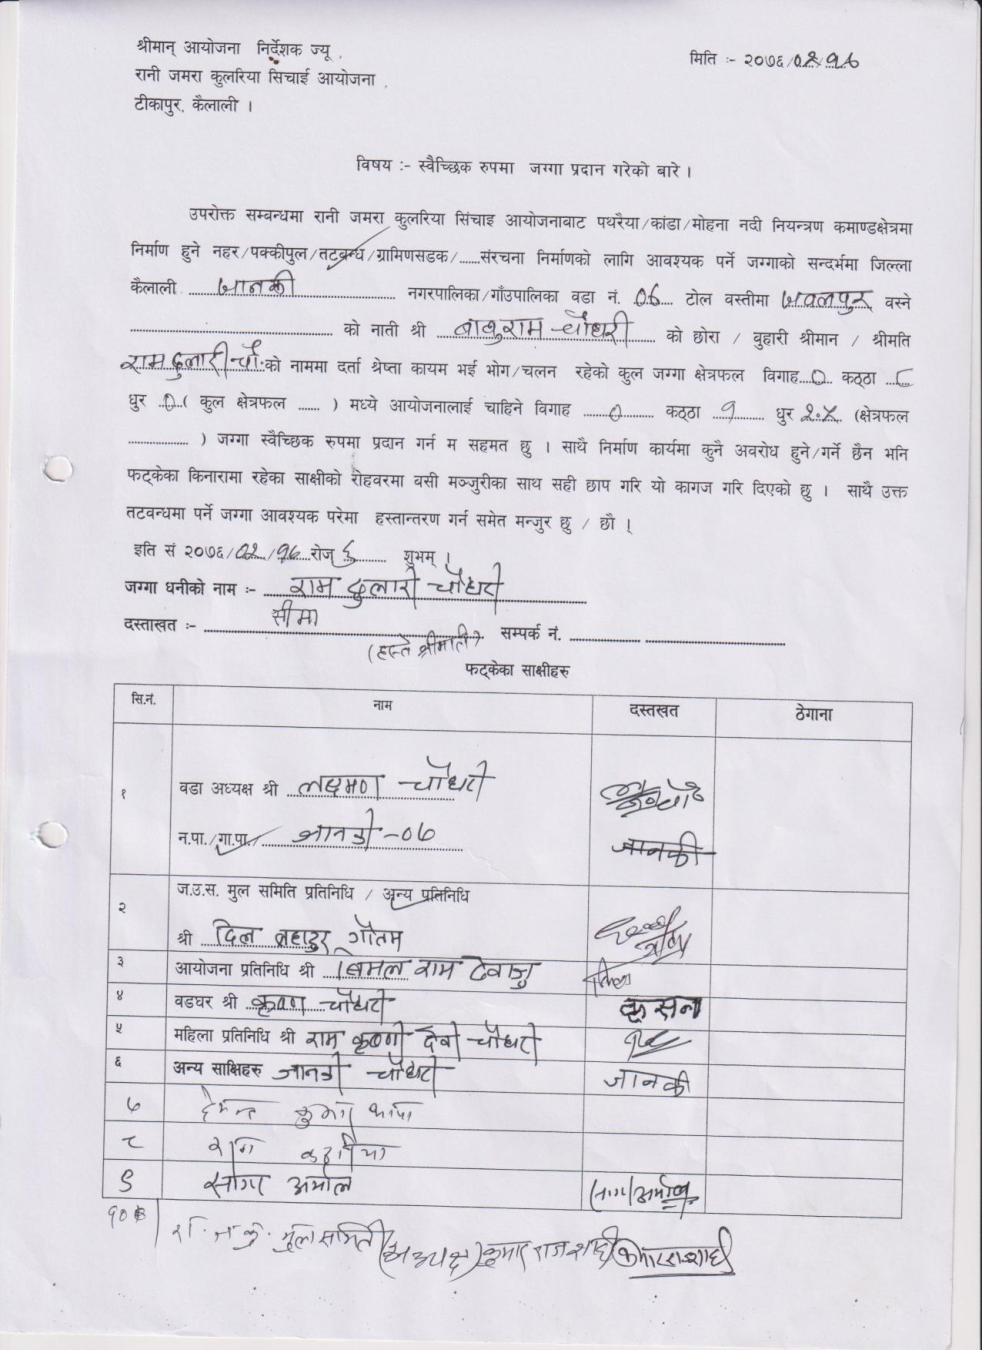 श्रीमान् आयोजना निर्देशक ज्यू ,
मिति :- २०७६/०२/१६
रानी जमरा कुलरिया सिचाई आयोजना ,
टीकापुर, कैलाली ।
विषय :- स्वैच्छिक रुपमा जग्गा प्रदान गरेको बारे ।
उपरोक्त सम्बन्धमा रानी जमरा कुलरिया सिंचाइ आयोजनाबाट पथरैया/कांडा/मोहना नदी नियन्त्रण कमाण्डक्षेत्रमा
निर्माण हुने नहर/पक्कीपुल/तटबन्ध/ग्रामिणसडक/......संरचना निर्माणको लागि आवश्यक पर्ने जग्गाको सन्दर्भमा जिल्ला
कैलाली जानकी नगरपालिका/गाँउपालिका वडा नं. ०६ टोल वस्तीमा जवलपुर वस्ने
को नाती श्री बाबुराम चौधरी को छोरा / बुहारी श्रीमान / श्रीमति
रामदुलारी चौ. को नाममा दर्ता श्रेष्ता कायम भई भोग/चलन रहेको कुल जग्गा क्षेत्रफल विगाह ० कठ्ठा ८
धुर ० ( कुल क्षेत्रफल ...... ) मध्ये आयोजनालाई चाहिने विगाह ० कठ्ठा १ धुर २.५ (क्षेत्रफल
.................. ) जग्गा स्वैच्छिक रुपमा प्रदान गर्न म सहमत छु । साथै निर्माण कार्यमा कुनै अवरोध हुने/गर्ने छैन भनि
फट्केका किनारामा रहेका साक्षीको रोहवरमा वसी मञ्जुरीका साथ सही छाप गरि यो कागज गरि दिएको छु । साथै उक्त
तटवन्धमा पर्ने जग्गा आवश्यक परेमा हस्तान्तरण गर्न समेत मन्जुर छु / छौ ।
इति सं २०७६/०२/१६ रोज ६ शुभम् ।
जग्गा धनीको नाम :- राम दुलारी चौधरी
दस्ताखत :- सीमा सम्पर्क नं.
(हस्ते श्रीमति)
फट्केका साक्षीहरु
सि.नं. नाम दस्तखत ठेगाना
१ वडा अध्यक्ष श्री लक्ष्मण चौधरी
न.पा./गा.पा./ जानकी -०६ जानकी
२ ज.उ.स. मुल समिति प्रतिनिधि / अन्य प्रतिनिधि
श्री दिल बहादुर गौतम
३ आयोजना प्रतिनिधि श्री बिमल राम
४ वडघर श्री कृष्ण चौधरी कृसन
५ महिला प्रतिनिधि श्री राम कृष्णी देवी चौधरी
६ अन्य साक्षिहरु जानकी चौधरी जानकी
७ हेमन्त कुमार थापा
८ राम
९ सागर अर्याल
१० रा. ज. कु. मुल समिति (अध्यक्ष) कुमार राज शाही